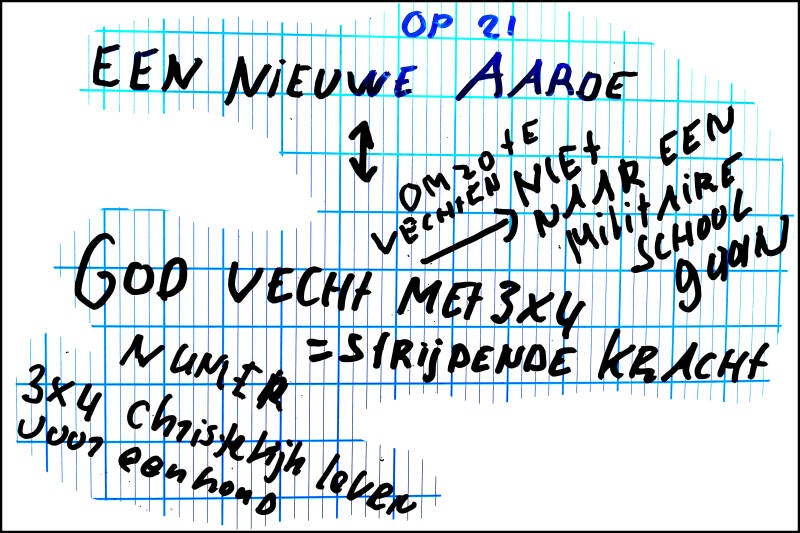 OP 21
EEN NIEUWE AARDE
OM ZO TE
VECHTEN
NIET
NAAR EEN
MILITAIRE
SCHOOL
gaan
GOD VECHT MET 3X4
= STRIJDENDE KRACHT
NUMER
3X4 Christelijk leven
voor een hond